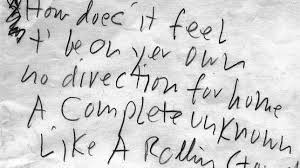 How does it feel
t' be on yer own
no direction for home
A Complete unknown
Like A Rollin